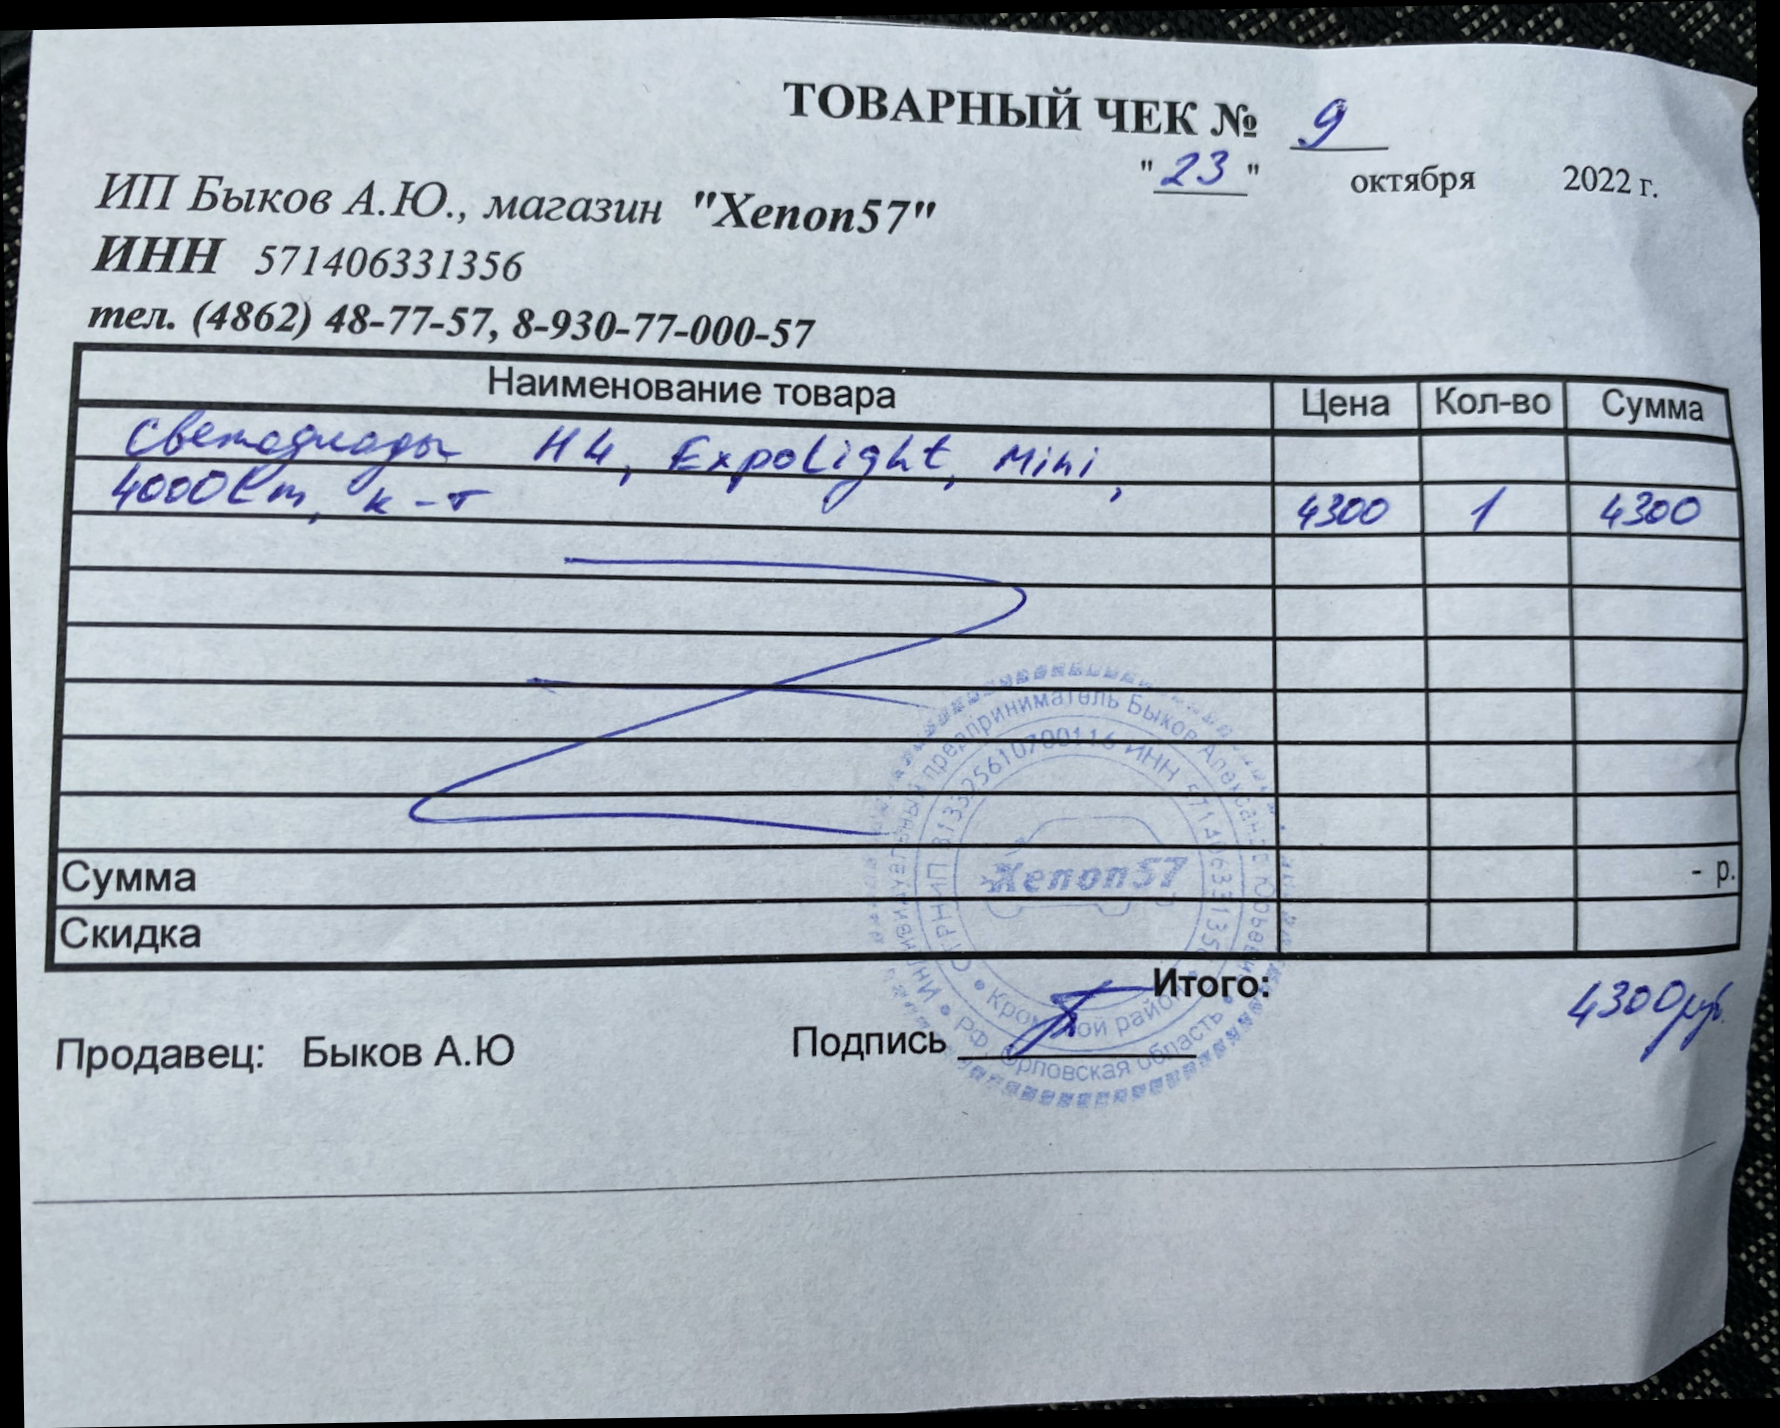 ТОВАРНЫЙ ЧЕК № 9
"23" октября 2022 г.
ИП Быков А.Ю., магазин "Xenon57"
ИНН 571406331356
тел. (4862) 48-77-57, 8-930-77-000-57
Наименование товара Цена Кол-во Сумма
Светодиоды H4, ExpoLight, Mini,
4000Lm, к-т 4300 1 4300
Сумма - р.
Скидка
Итого: 4300 руб.
Продавец: Быков А.Ю Подпись
Индивидуальный предприниматель Быков Александр Юрьевич
ИНН 571406331356
Xenon57
Кромской район
РФ, Орловская область